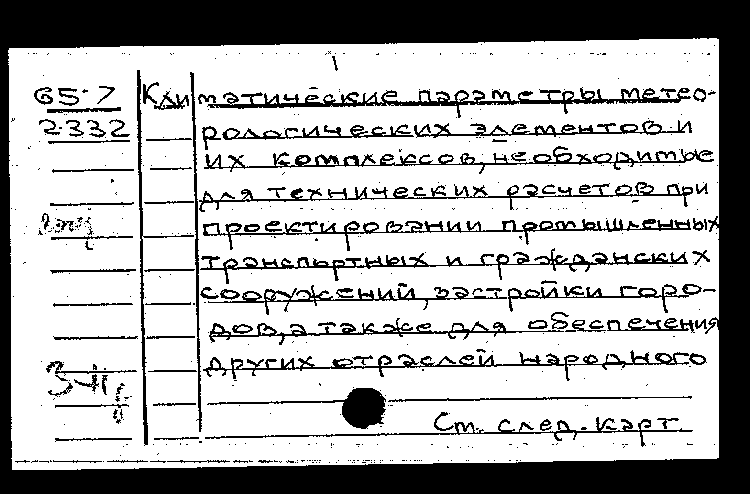 65-7
2332
Климатические параметры метео-
рологических элементов и
их комплексов, необходимые
для технических расчетов при
проектировании промышленных
транспортных и гражданских
сооружений, застройки горо-
дов, а также для обеспечения
других отраслей народного
Ст. след. карт.